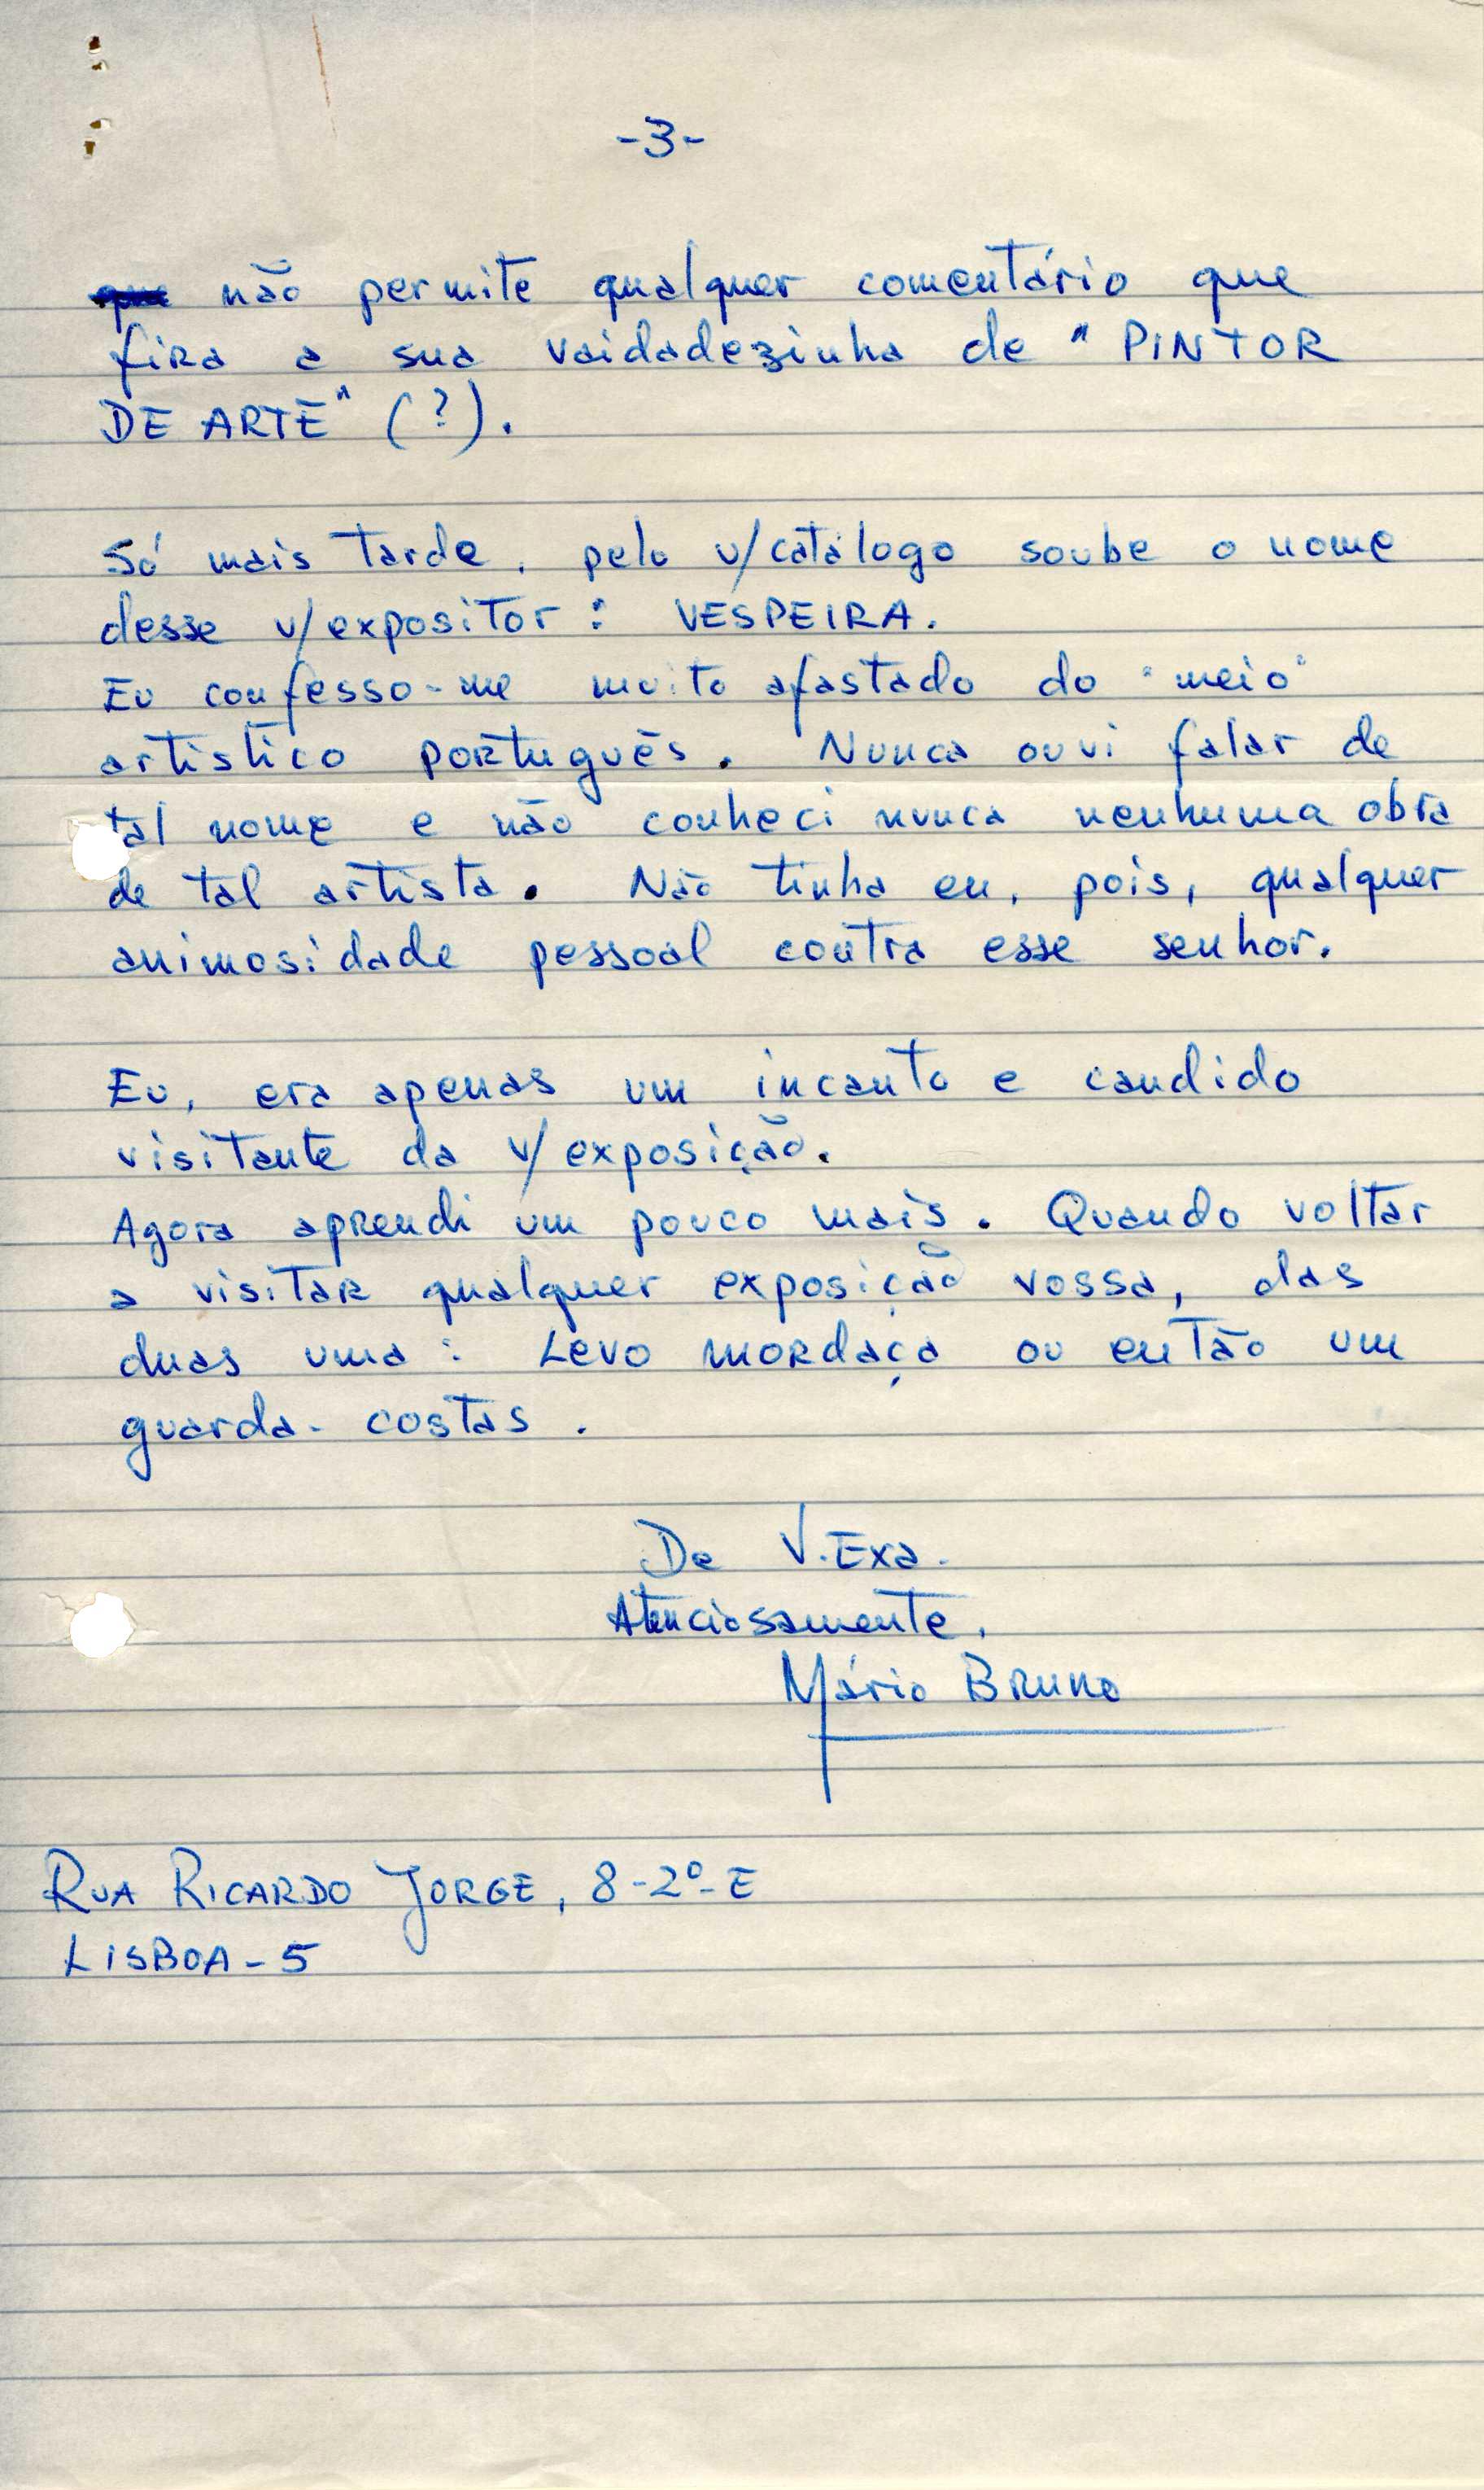 -3-
não permite qualquer comentário que
fira a sua vaidadezinha de "PINTOR
DE ARTE" (?).
Só mais tarde, pelo v/catálogo soube o nome
desse v/expositor: VESPEIRA.
Eu confesso-me muito afastado do "meio"
artístico português. Nunca ouvi falar de
tal nome e não conheci nunca nenhuma obra
de tal artista. Não tinha eu, pois, qualquer
animosidade pessoal contra esse senhor.
Eu, era apenas um incauto e candido
visitante da v/exposição.
Agora aprendi um pouco mais. Quando voltar
a visitar qualquer exposição vossa, das
duas uma: Levo mordaça ou então um
guarda-costas.
De V.Exa.
Atenciosamente,
Mário Bruno
RUA RICARDO JORGE, 8-2º-E
LISBOA-5